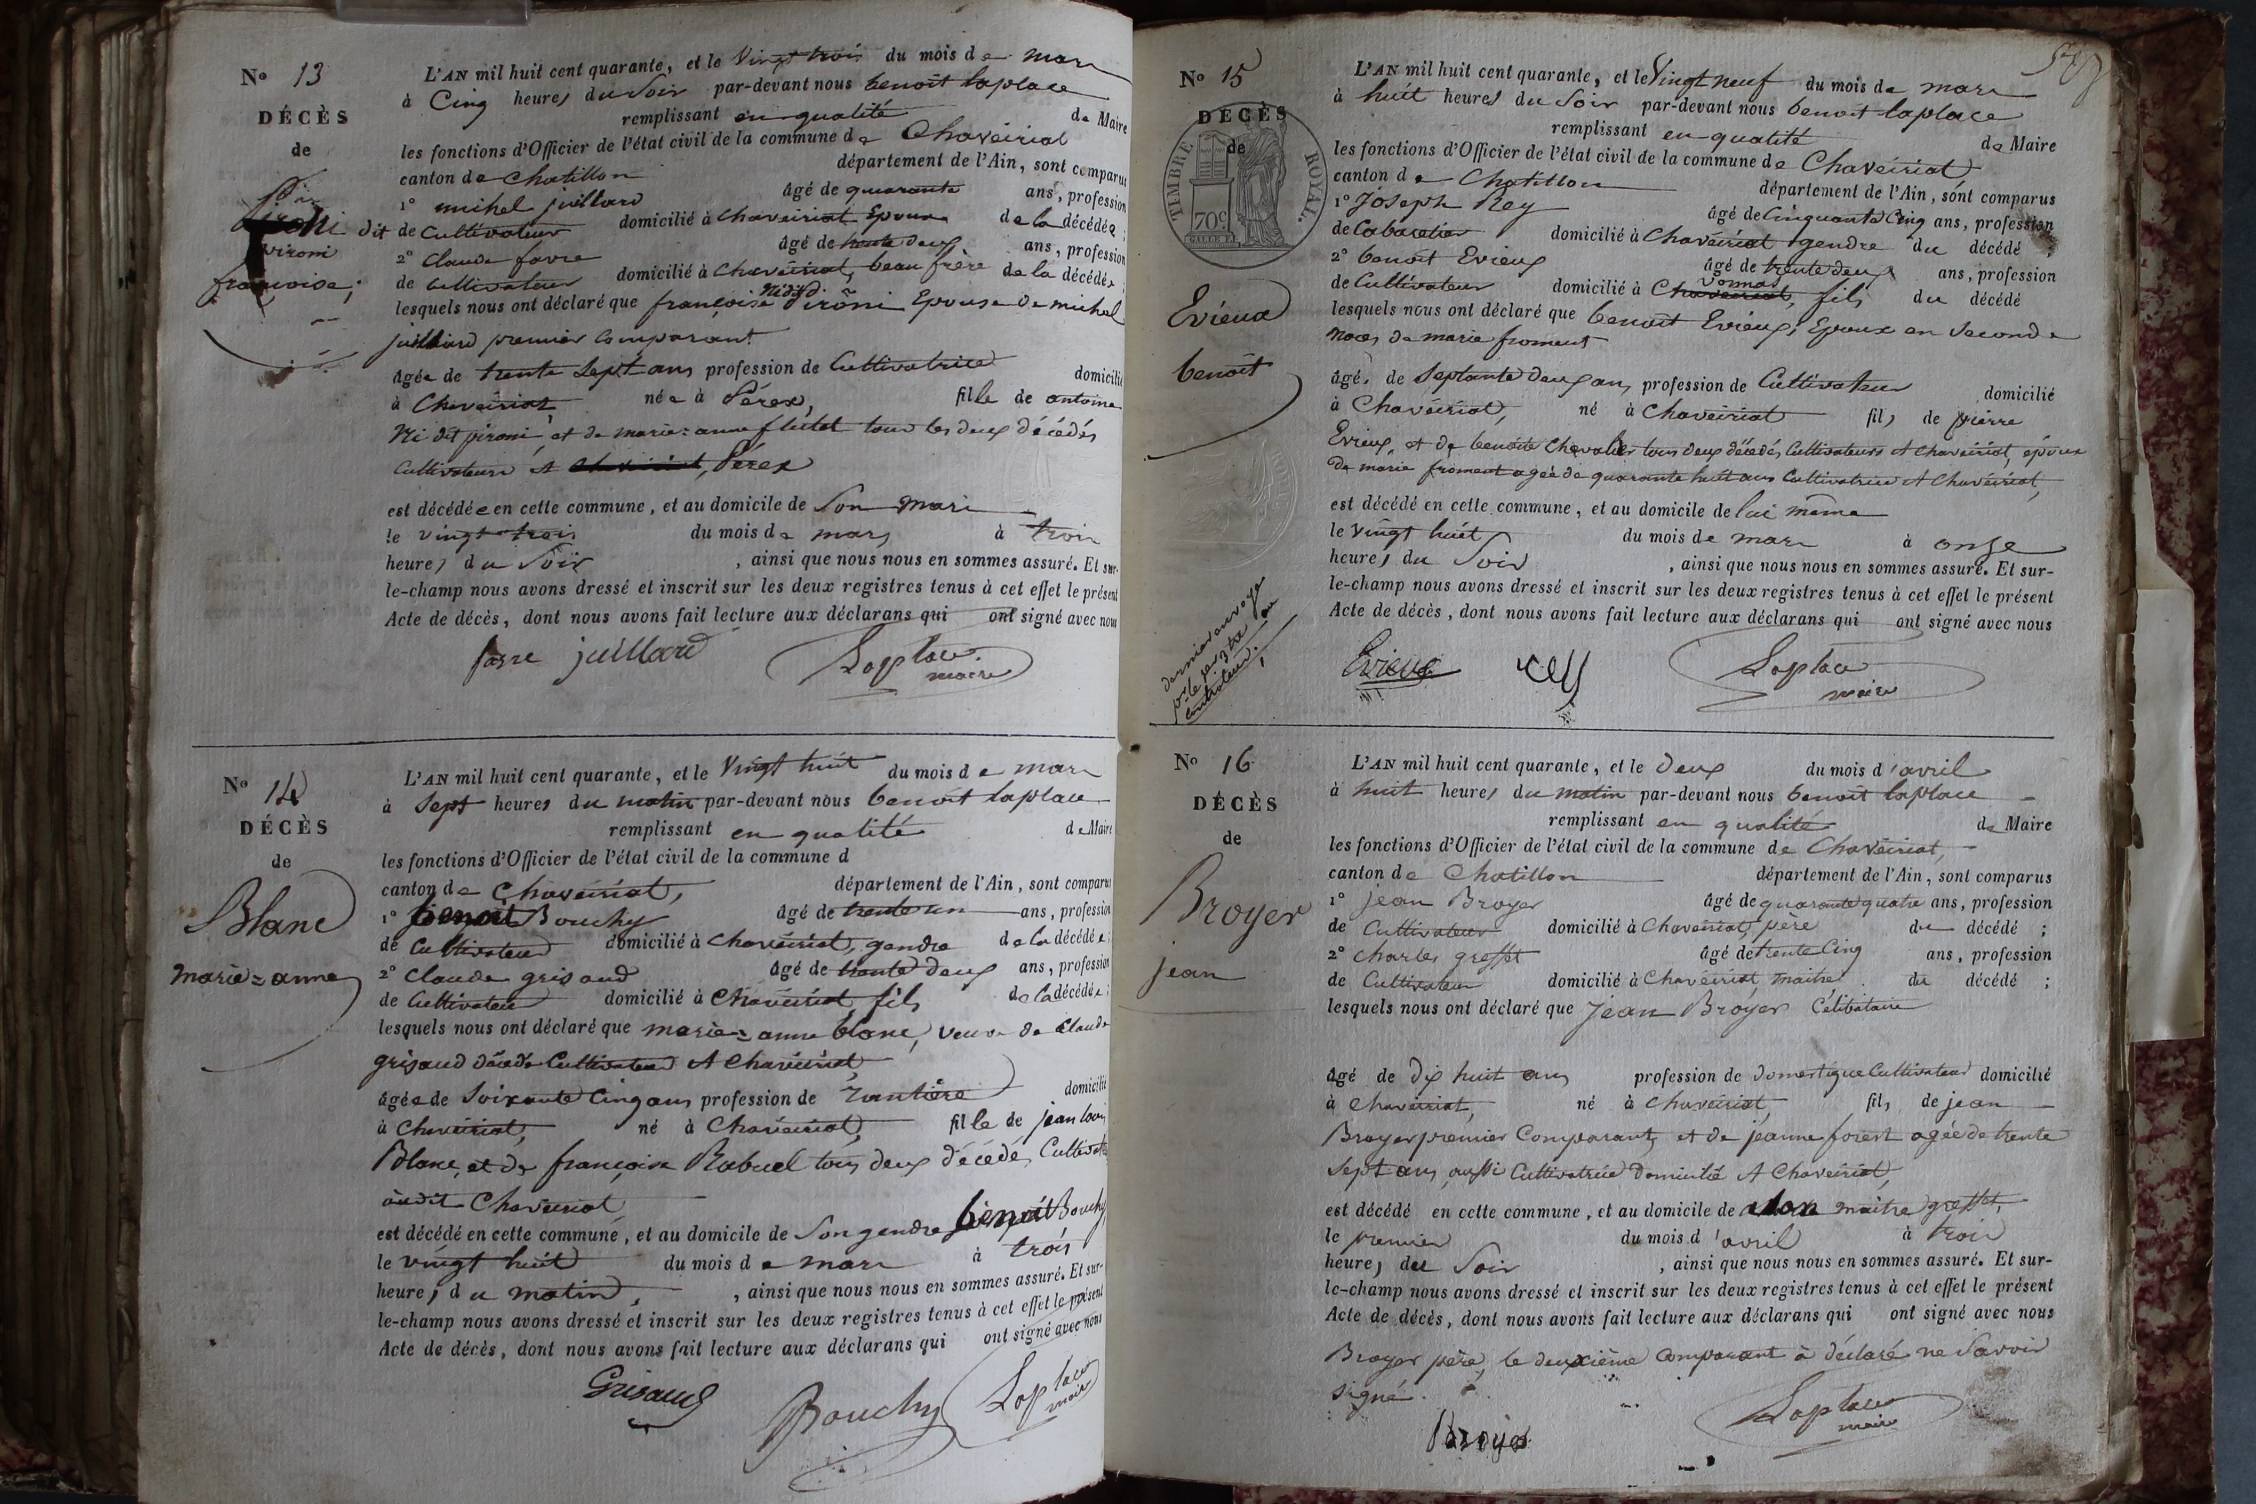 No 13
DÉCÈS
de
dit
pironi
françoise;
L'AN mil huit cent quarante, et le Vingt trois du mois de mars
à Cinq heures du Soir par-devant nous benoit laplace
remplissant en qualité de Maire
les fonctions d'Officier de l'état civil de la commune de Chaveiriat
canton de Chatillon département de l'Ain, sont comparus
1° michel juillard âgé de quarante ans, profession
de Cultivateur domicilié à Chaveiriat Epoux de la décédée;
2° Claude favre âgé de trente deux ans, profession
de Cultivateur domicilié à Chaveiriat, beau frère de la décédée;
lesquels nous ont déclaré que françoise Ni dit Pirôni Epouse de michel
juillard premier Comparant
âgée de trente Sept ans profession de Cultivatrice domicilié
à Chaveiriat née à Pérex, fille de antoine
Ni dit pironi, et de marie=anne flutet tous les deux décédés
Cultivateurs A Chaveiriat, Pérex
est décédée en cette commune, et au domicile de Son mari
le vingt trois du mois de mars à trois
heures du Soir, ainsi que nous nous en sommes assuré. Et sur-
le-champ nous avons dressé et inscrit sur les deux registres tenus à cet effet le présent
Acte de décès, dont nous avons fait lecture aux déclarans qui ont signé avec nous
favre juillard Laplace
maire
No 14
DÉCÈS
de
Blanc
marie=anne
L'AN mil huit cent quarante, et le Vingt huit du mois de mars
à Sept heures du matin par-devant nous benoit laplace
remplissant en qualité de Maire
les fonctions d'Officier de l'état civil de la commune d
canton de Chaveiriat, département de l'Ain, sont comparus
1° benoit Bouchy âgé de trente un ans, profession
de Cultivateur domicilié à Chaveiriat, gendre de la décédée;
2° Claude grisaud âgé de trente deux ans, profession
de Cultivateur domicilié à Chaveiriat fils de la décédée;
lesquels nous ont déclaré que marie=anne blanc, veuve de Claude
grisaud décédé Cultivateur A Chaveiriat
âgée de Soixante Cinq ans profession de Rantière domicilié
à Chaveiriat, né à Chaveiriat, fille de jean louis
Blanc, et de françoise Rabuel tous deux décédés Cultivateurs
audit Chaveiriat
est décédé en cette commune, et au domicile de Son gendre benoit Bouchy
le vingt huit du mois de mars à trois
heures du matin, ainsi que nous nous en sommes assuré. Et sur-
le-champ nous avons dressé et inscrit sur les deux registres tenus à cet effet le présent
Acte de décès, dont nous avons fait lecture aux déclarans qui ont signé avec nous
Grisaud Bouchy Laplace
maire
No 15
DÉCÈS
de
TIMBRE ROYAL.
70c
Evieux
benoit
dernier
controleur.
L'AN mil huit cent quarante, et le Vingt neuf du mois de mars
à huit heures du Soir par-devant nous benoit laplace
remplissant en qualité de Maire
les fonctions d'Officier de l'état civil de la commune de Chaveiriat
canton de Chatillon département de l'Ain, sont comparus
1° Joseph Rey âgé de Cinquante Cinq ans, profession
de Cabaretier domicilié à Chaveiriat gendre du décédé;
2° benoit Evieux âgé de trente deux ans, profession
de Cultivateur domicilié à Chaveiriat, Vonnas fils du décédé
lesquels nous ont déclaré que benoit Evieux, Epoux en Seconde
noces de marie froment
âgé de Septante deux ans profession de Cultivateur domicilié
à Chaveiriat, né à Chaveiriat fils de pierre
Evieux, et de benoite Chevalier tous deux décédés Cultivateurs A Chaveiriat, époux
de marie froment agée de quarante huit ans Cultivatrice A Chaveiriat,
est décédé en cette commune, et au domicile de lui même
le Vingt huit du mois de mars à onze
heures du Soir, ainsi que nous nous en sommes assuré. Et sur-
le-champ nous avons dressé et inscrit sur les deux registres tenus à cet effet le présent
Acte de décès, dont nous avons fait lecture aux déclarans qui ont signé avec nous
Evieux Rey Laplace
maire
No 16
DÉCÈS
de
Broyer
jean
L'AN mil huit cent quarante, et le deux du mois d'avril
à huit heures du matin par-devant nous benoit laplace
remplissant en qualité de Maire
les fonctions d'Officier de l'état civil de la commune de Chaveiriat,
canton de Chatillon département de l'Ain, sont comparus
1° jean Broyer âgé de quarante quatre ans, profession
de Cultivateur domicilié à Chaveiriat, père du décédé;
2° charles greffet âgé de trente Cinq ans, profession
de Cultivateur domicilié à Chaveiriat, maitre du décédé;
lesquels nous ont déclaré que Jean Broyer Célibataire
âgé de dix huit ans profession de domestique Cultivateur domicilié
à Chaveiriat, né à Chaveiriat, fils de jean
Broyer premier Comparant, et de jeanne forest agée de trente
Sept ans, aussi Cultivatrice domicilié A Chaveiriat,
est décédé en cette commune, et au domicile de Son maitre greffet,
le premier du mois d'avril à trois
heures du Soir, ainsi que nous nous en sommes assuré. Et sur-
le-champ nous avons dressé et inscrit sur les deux registres tenus à cet effet le présent
Acte de décès, dont nous avons fait lecture aux déclarans qui ont signé avec nous
Broyer père, le deuxième Comparant à déclaré ne Savoir
signé.
Broyer Laplace
maire